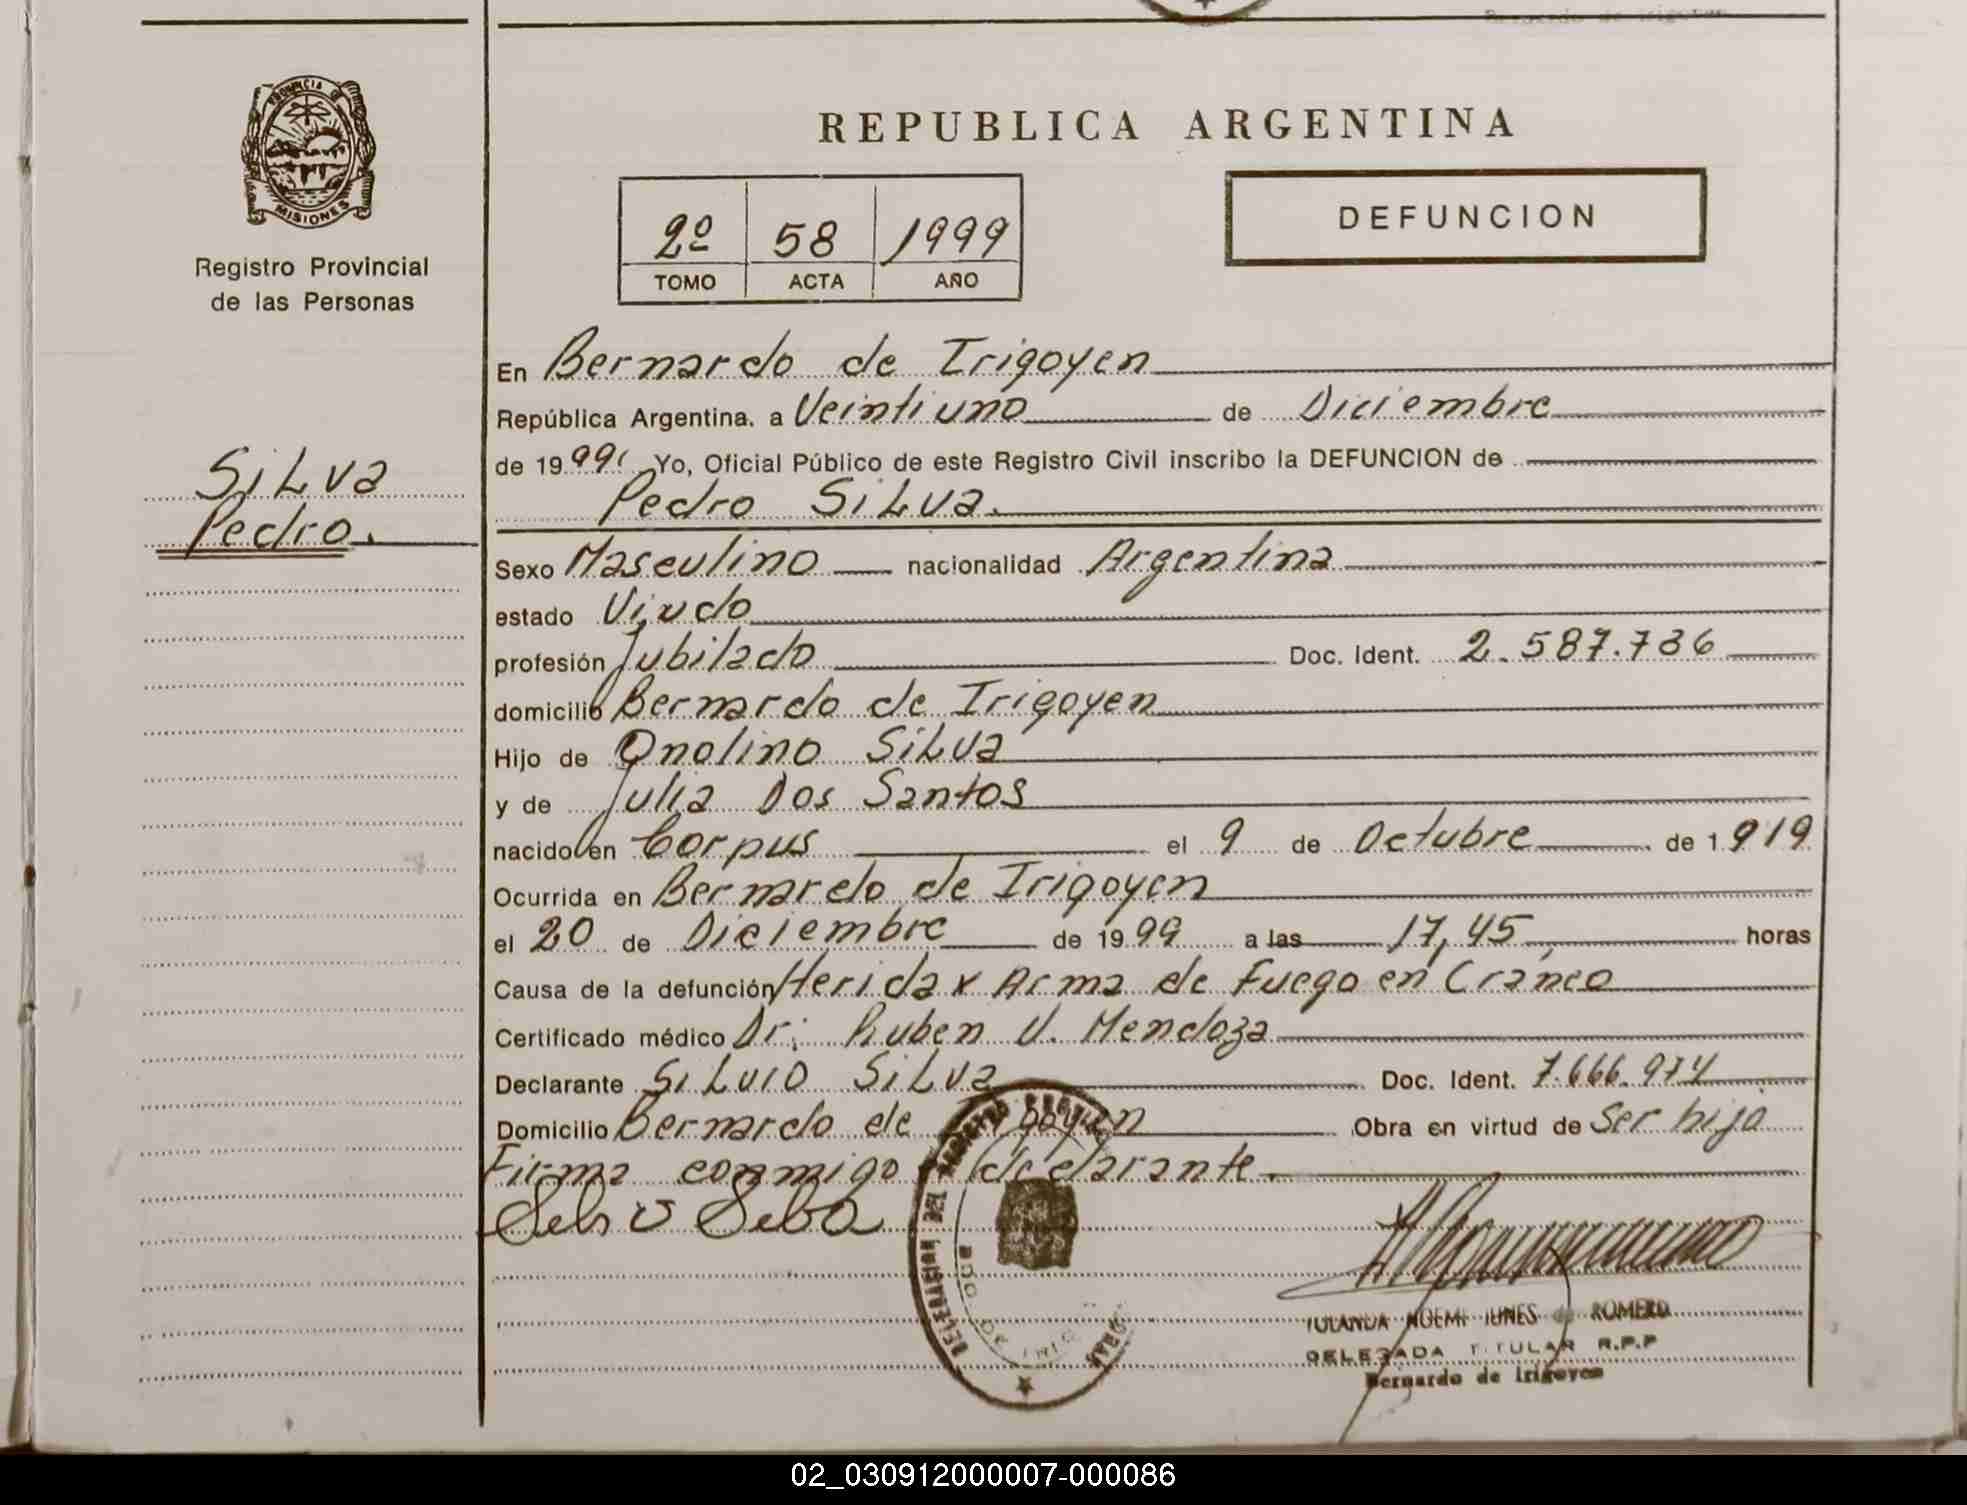 PROVINCIA DE
MISIONES
Registro Provincial
de las Personas
SiLva
Pedro.
Bernardo de Irigoyen
REPUBLICA ARGENTINA
2º 58 1999
TOMO ACTA AÑO
DEFUNCION
En Bernardo de Irigoyen
República Argentina, a Veintiuno de Diciembre
de 1999 Yo, Oficial Público de este Registro Civil inscribo la DEFUNCION de
Pedro SiLva.
Sexo Masculino nacionalidad Argentina
estado Viudo
profesión Jubilado Doc. Ident. 2.587.736
domicilio Bernardo de Irigoyen
Hijo de Onolino SiLva
y de Julia Dos Santos
nacido en Corpus el 9 de Octubre de 1.919
Ocurrida en Bernardo de Irigoyen
el 20 de Diciembre de 1999 a las 17,45 horas
Causa de la defunción Herida x Arma de Fuego en Craneo
Certificado médico Dr: Ruben V. Mendoza
Declarante SiLvio SiLva Doc. Ident. 7.666.974
Domicilio Bernardo de Irigoyen Obra en virtud de Ser hijo
Firma conmigo el declarante.
YOLANDA NOEMI IUNES de ROMERO
DELEGADA TITULAR R.P.P
Bernardo de Irigoyen
02_030912000007-000086